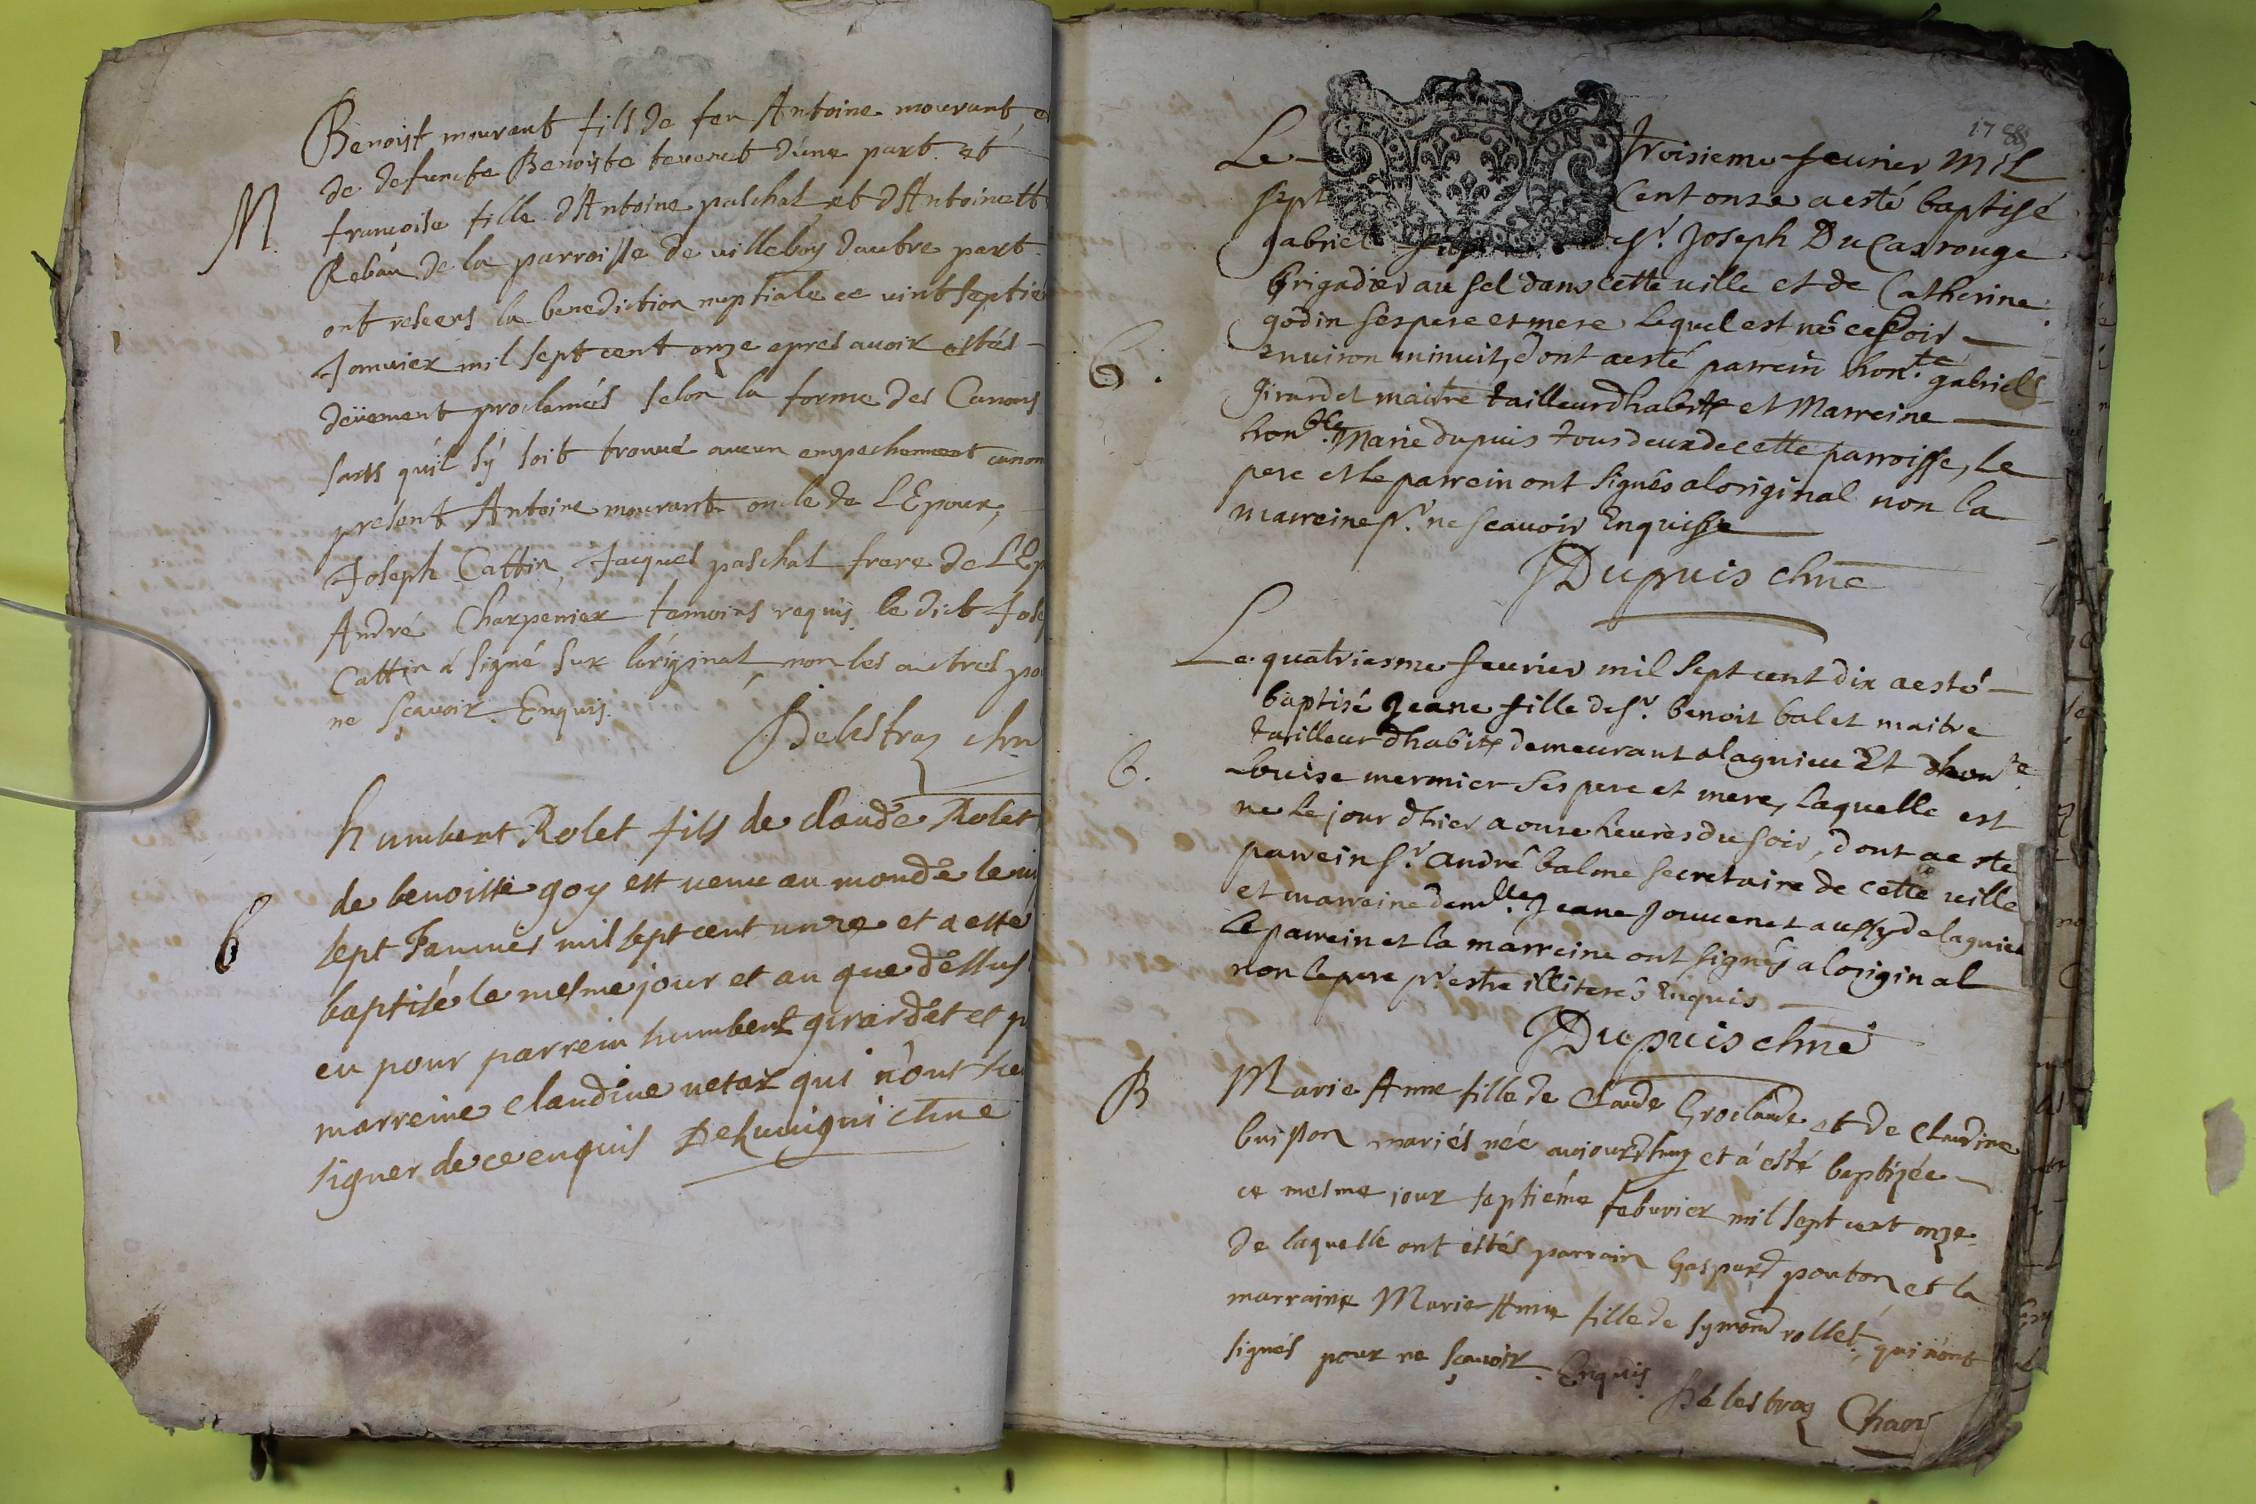 Benoist mourant fils de feu Antoine mourant, e
de defuncte Benoiste tevenet d'une part et
M
francoise fille d'Antoine paschal et d'Antoinett
Rebau de la parroisse de villeboy d'autre part
ont receus la benediction nuptiale ce vint septie
Janvier mil sept cent onze apres avoir estés
deüement proclamés selon la forme des Canons
sans qu'il s'y soit trouvé aucun empechement canon
present Antoine mourant oncle de L'Epoux,
Joseph Cattin, Jacques paschal frere de L'Ep
André Charpenier temoins requis le dict Jose
Cattin a signé sur l'original non les autres po
ne sçavoir Enquis.
Delestraz chn
humbert Rolet fils de claude Rolet
de benoiste goy est venu au monde le vi
6
sept Janvier mil sept cent unze et a esté
baptisé le mesme jour et an que dessus
eu pour parrein humbert girardet et p
marreine claudine vetar qui n'ont sce
signer de ce enquis Dehumigni chne
1788
Le troisieme feurier Mil
sept Cent onze a esté baptisé
gabriel fils de sr. Joseph DuCarrouge
brigadier au sel dans cette ville et de Catherine
godin ses pere et mere lequel est né ce soir
6.
environ minuit, dont a esté parrein honte. gabriel
girardet maitre tailleur d'habits et Marreine
honble. Marie dupuis tous deux de cette parroisse, le
pere et le parrein ont signés a loriginal non la
marreine pr. ne scavoir Enquisse
Dupuis chne
Le quatriesme feurier mil sept cent dix a esté
baptisé Jeane fille de sr. benoit balet maitre
tailleur d'habits demeurant a lagnieu Et d'honte.
6.
Louise mermier ses pere et mere, laquelle est
ne le jour d'hier a onze heures du soir, dont a este
parrein sr. andré balme secretaire de cette ville
et marreine demlle. Jeane Jouvenet aussy de lagnieu
le parrein et la marreine ont signés a loriginal
non le pere pr. estre illiterés Enquis
Dupuis chne
B
Marie Anne fille de Claude Grosclaude et de Claudine
buisson mariés née aujourd'huy et a esté baptizée
ce mesme jour septiéme feburier mil sept cent onze
de laquelle ont estés parrain Gaspard ponton et la
marraine Marie Anne fille de symond rollet, qui n'ont
signés pour ne sçavoir Enquis.
Delestraz Chan